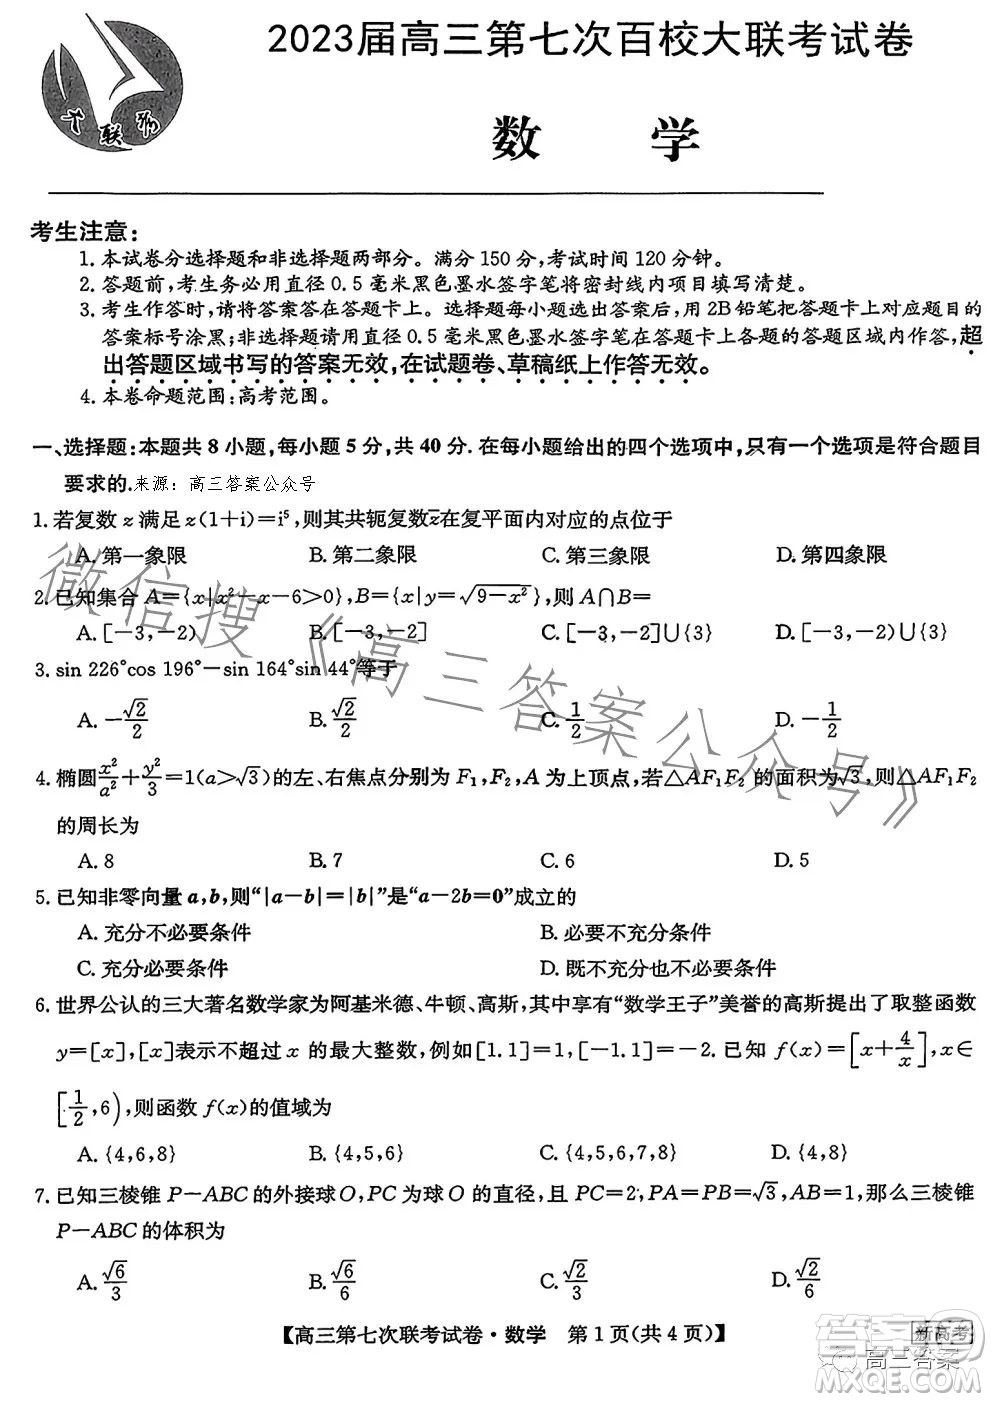 2023届高三第七次百校大联考试卷
数 学
考生注意:
1. 本试卷分选择题和非选择题两部分。满分 150 分,考试时间 120 分钟。
2. 答题前,考生务必用直径 0.5 毫米黑色墨水签字笔将密封线内项目填写清楚。
3. 考生作答时,请将答案答在答题卡上。选择题每小题选出答案后,用 2B 铅笔把答题卡上对应题目的
答案标号涂黑;非选择题请用直径 0.5 毫米黑色墨水签字笔在答题卡上各题的答题区域内作答,超
出答题区域书写的答案无效,在试题卷、草稿纸上作答无效。
4. 本卷命题范围:高考范围。
一、选择题:本题共 8 小题,每小题 5 分,共 40 分. 在每小题给出的四个选项中,只有一个选项是符合题目
要求的.来源: 高三答案公众号
1. 若复数 z 满足 z(1+i)=i⁵,则其共轭复数z̄在复平面内对应的点位于
A. 第一象限 B. 第二象限 C. 第三象限 D. 第四象限
2. 已知集合 A={x|x²-x-6>0},B={x|y=√(9-x²)},则 A∩B=
A. [-3,-2) B. [-3,-2] C. [-3,-2]∪{3} D. [-3,-2)∪{3}
3. sin 226°cos 196°-sin 164°sin 44°等于
A. -√2/2 B. √2/2 C. 1/2 D. -1/2
4. 椭圆x²/a²+y²/3=1(a>√3)的左、右焦点分别为 F₁,F₂,A 为上顶点,若△AF₁F₂ 的面积为√3,则△AF₁F₂
的周长为
A. 8 B. 7 C. 6 D. 5
5. 已知非零向量 a,b,则“|a-b|=|b|”是“a-2b=0”成立的
A. 充分不必要条件 B. 必要不充分条件
C. 充分必要条件 D. 既不充分也不必要条件
6. 世界公认的三大著名数学家为阿基米德、牛顿、高斯,其中享有“数学王子”美誉的高斯提出了取整函数
y=[x],[x]表示不超过 x 的最大整数,例如[1.1]=1,[-1.1]=-2. 已知 f(x)=[x+4/x],x∈
[1/2,6),则函数 f(x)的值域为
A. {4,6,8} B. {4,5,6} C. {4,5,6,7,8} D. {4,8}
7. 已知三棱锥 P-ABC 的外接球 O,PC 为球 O 的直径,且 PC=2,PA=PB=√3,AB=1,那么三棱锥
P-ABC 的体积为
A. √6/3 B. √6/6 C. √2/3 D. √2/6
【高三第七次联考试卷·数学 第 1 页(共 4 页)】
新高考
微信搜《高三答案公众号》
高三答案
答案圈
MXQE.COM